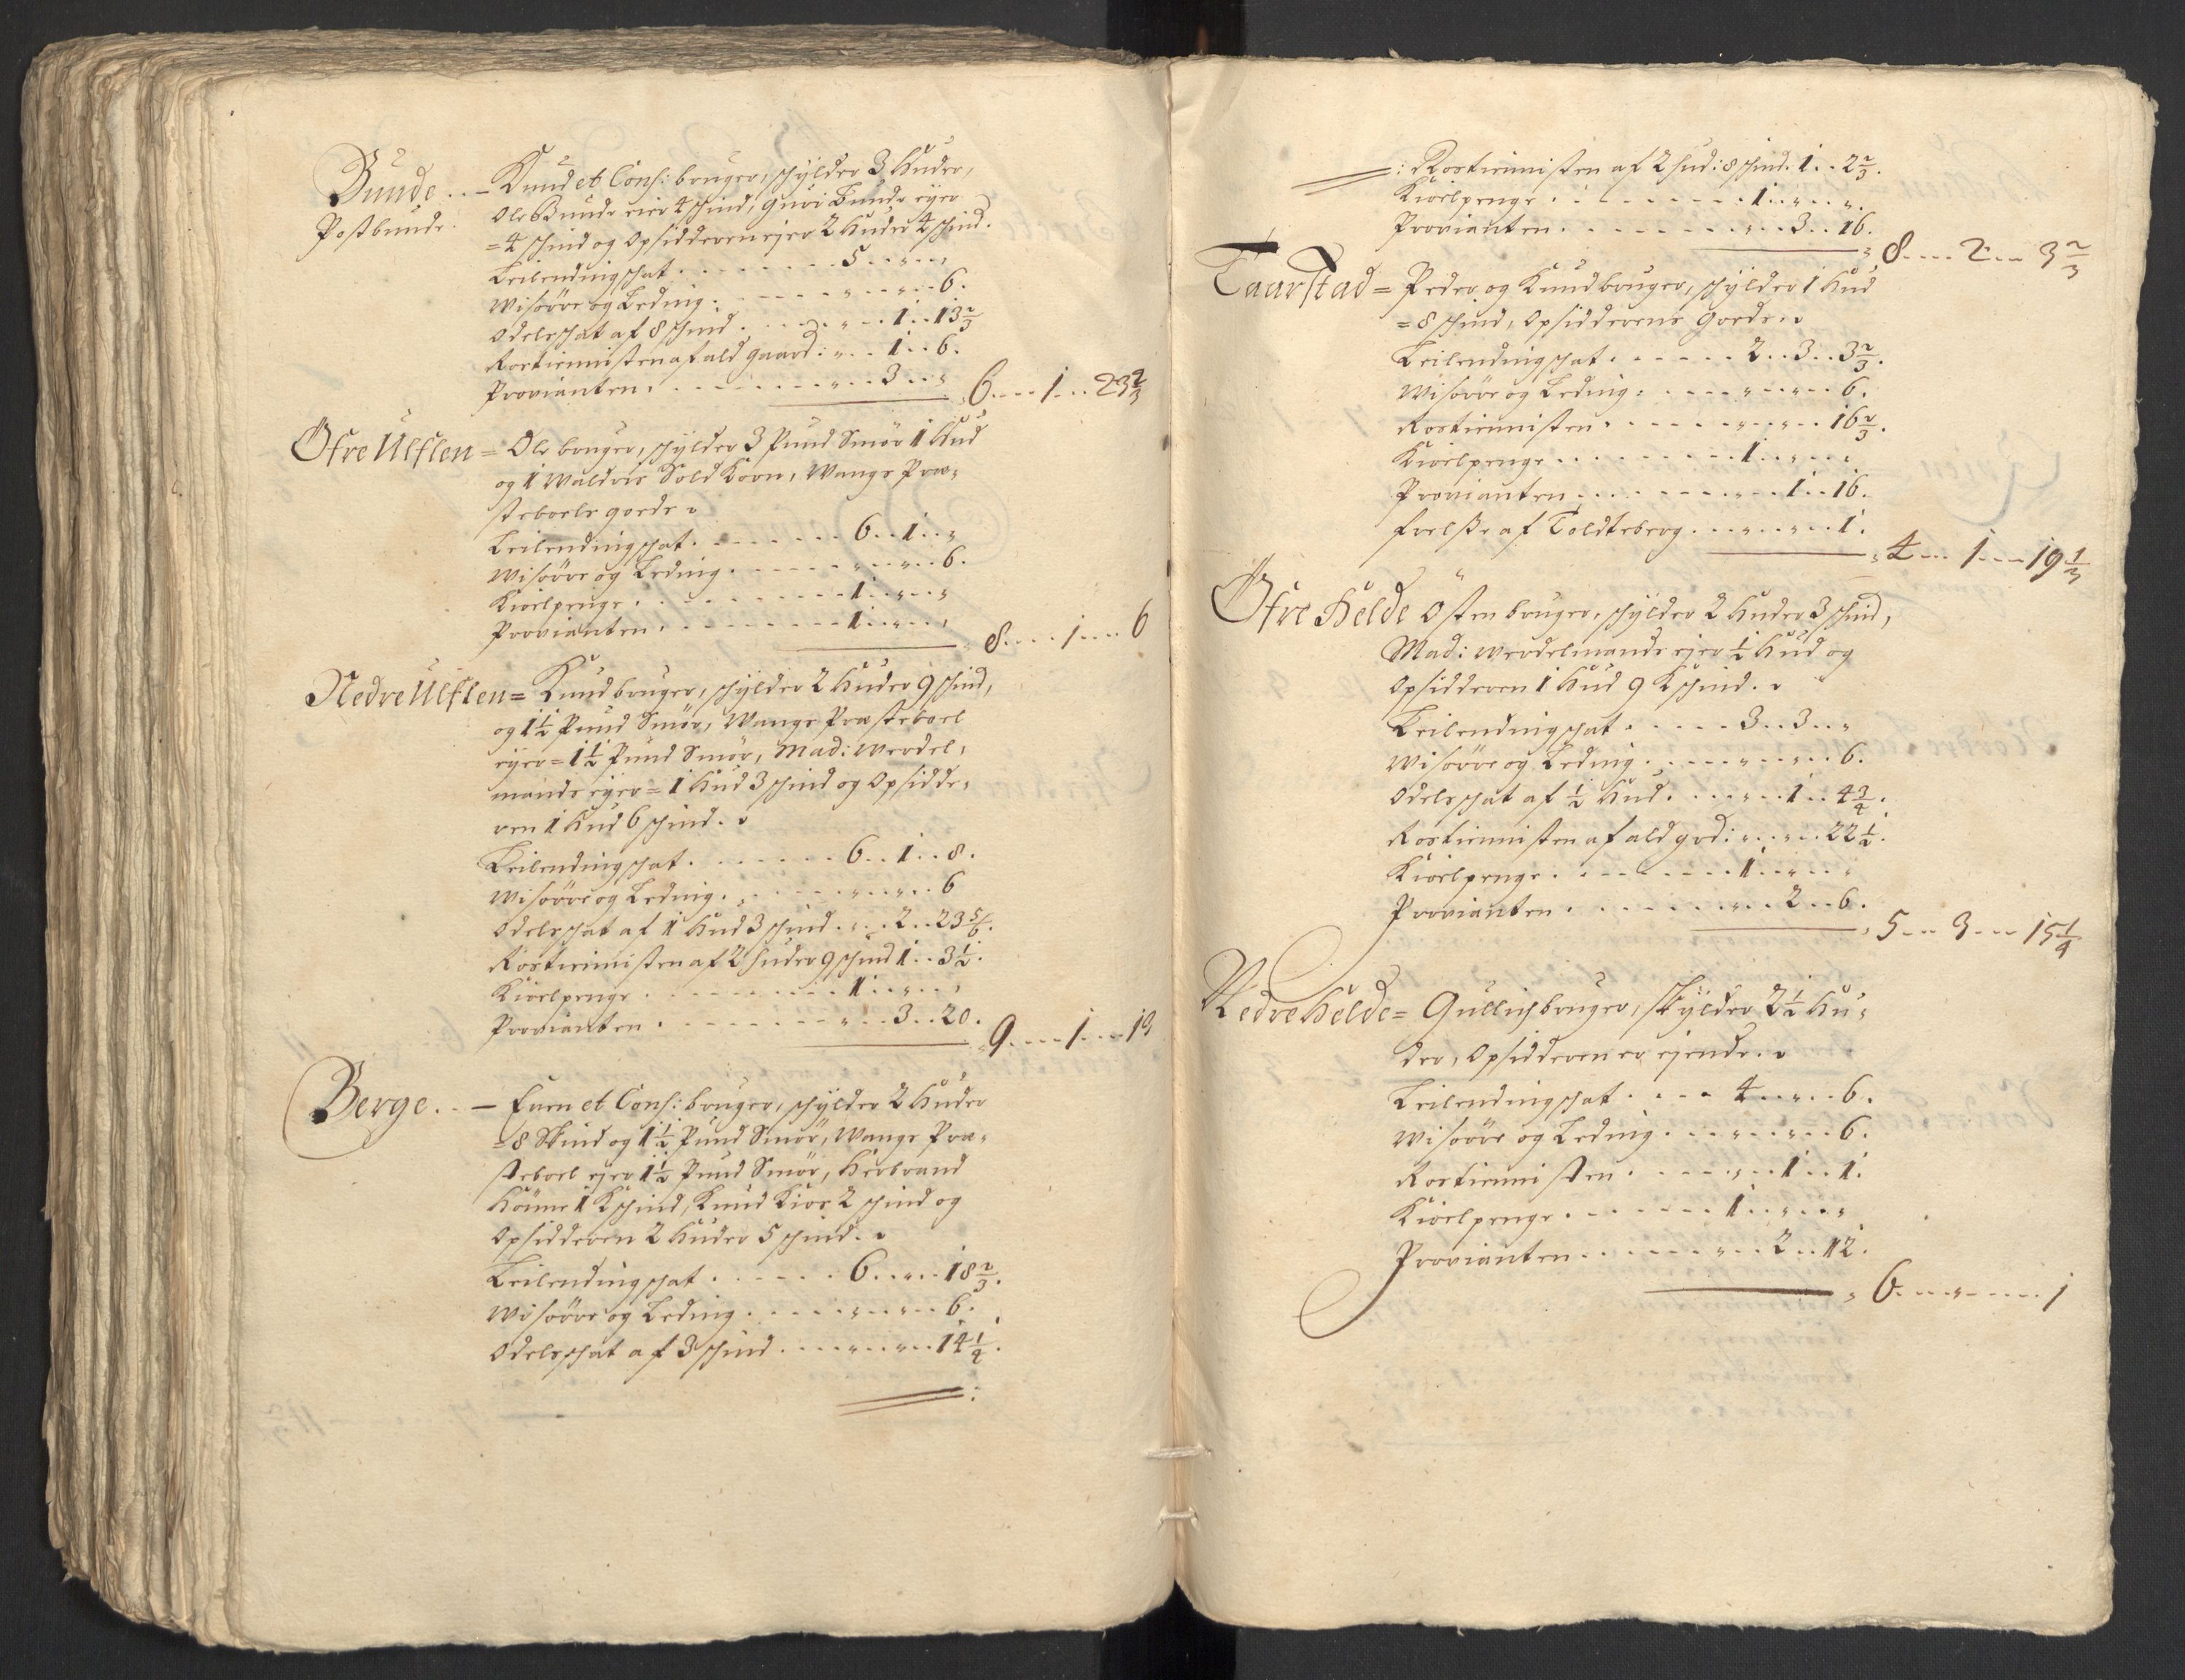 Bunde . . — Knud et Cons: bruger, schylder 3 Huder,
Postbunde. Ole Bunde eier 4 schind, Guri Bunde eyer
= 4 schind og Opsidderen ejer 2 Huder 4 schind.
Leilendingschat . . . . . . . . 5 . . " . . "
Wisöre og Leding . . . . . " . . " . . 6.
Odelsschat af 8 schind . . . . " . . 1 . . 13 2/3
Rostiennisten af ald gaard: " . . 1 . . 6.
Provianten . . . . . . . . . " . . 3 . . " 6 . . . 1 . . 23 2/3
Öfre Ulflen = Ole bruger, schylder 3 Pund Smör 1 Hud
og 1 Waldris Sold Korn, Wangs Præ=
steboels gods
Leilendingschat . . . . . . . 6 . . 1 . . "
Wisöre og Leding . . . . . " . . " . . 6.
Kioelpenge . . . . . . . . . 1 . . " . . "
Provianten . . . . . . . . . 1 . . " . . " 8 . . . 1 . . . 6
Nedre Ulflen = Knud bruger, schylder 2 Huder 9 schind,
og 1 1/2 Pund Smör, Wangs Præsteboel
eyer = 1 1/2 Pund Smör, Mad: Werdel=
mands eyer = 1 Hud 3 schind og Opsidde=
ren 1 Hud 6 schind.
Leilendingschat . . . . . . . 6 . . 1 . . 8.
Wisöre og Leding . . . . . " . . " . . 6
Odelsschat af 1 Hud 3 schind . . " . . 2 . . 23 5/6.
Rostiennisten af 2 Huder 9 schind 1 . . 3 1/2.
Kioelpenge . . . . . . . . . 1 . . " . . "
Provianten . . . . . . . . " . . 3 . . 20. 9 . . . 1 . . . 19
Berge . . — Even et Cons: bruger, schylder 2 Huder
= 8 Skind og 1 1/2 Pund Smör, Wangs Præ=
steboel ejer 1 1/2 Pund Smör, Herbrand
1 Kschind, Knud Kios 2 schind og
Opsidderen 2 Huder 5 schind.
Leilendingschat . . . . . . 6 . . " . . 18 2/3.
Wisöre og Leding . . . . . " . . " . . 6.
Odelsschat af 3 schind . . . . " . . " . . 14 1/4.
: Rostiennisten af 2 Hud: 8 schind. 1 . . 2 2/3.
Kioelpenge . . . . . . . . . 1 . . " . . ".
Provianten . . . . . . . . " . . 3 . . 16. 8 . . . 2 . . 3 2/3
Taarstad = Peder og Knud bruger, schylder 1 Hud
= 8 schind, Opsidderens Gods.
Leilendingschat . . . . . . 2 . . 3 . . 3 2/3.
Wisöre og Leding . . . . " . . " . . 6.
Rostiennisten . . . . . . " . . " . . 16 2/3.
Kioelpenge . . . . . . . . 1 . . " . . "
Provianten . . . . . . . . " . . 1 . . 16.
Foelsße af Toldteberg . . . " . . " . . 1. 4 . . . 1 . . . 19 1/3
Öfre Helde Östen bruger, schylder 2 Huder 3 schind,
Mad: Werdelmands ejer 1/2 Hud og
Opsidderen 1 Hud 9 Kschind.
Leilendingschat . . . . . 3 . . 3 . . "
Wisöre og Leding . . . . . " . . " . . 6.
Odelsschat af 1/2 Hud . . . . " . . 1 . . 4 3/4.
Rostiennisten af ald god: " . . " . . 22 1/2.
Kioelpenge . . . . . . . . 1 . . " . . "
Provianten . . . . . . . . " . . 2 . . 6. 5 . . . 3 . . . 15 1/4
Nedre Helde = Gullich bruger, skylder 2 1/2 Hu=
der, Opsidderen er ejende.
Leilendingschat . . . . 4 . . " . . 6.
Wisöre og Leding . . . . " . . " . . 6.
Rostiennisten . . . . . " . . 1 . . 1.
Kioelpenge . . . . . . . 1 . . " . . "
Provianten . . . . . . " . . 2 . . 12. 6 . . . " . . . 1